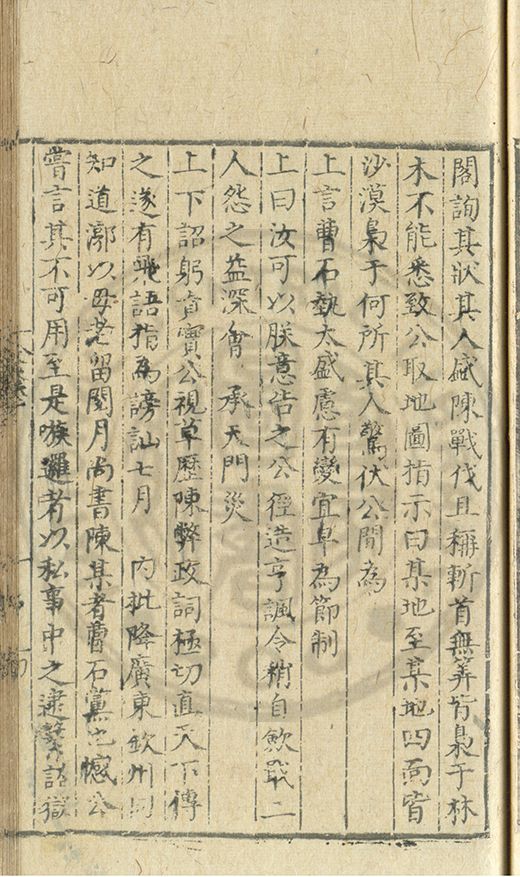 閣詢其狀其人盛陳戰伐且稱斬首無筭皆梟于林
木不能悉致公取地圖指示曰某地至某地四面皆
沙漠梟于何所其人驚伏公間為
上言曹石勢太盛慮有變宜早為節制
上曰汝可以朕意告之公徑造亨諷令稍自歛戢二
人怨之益深會 承天門災
上下詔躬責實公視草歷陳弊政詞極切直天下傳
之遂有飛語指為謗訕七月 內批降廣東欽州同
知道漷以母老留閱月尚書陳某者曹石黨也憾公
嘗言其不可用至是嗾邏者以私事中之逮繫詔獄